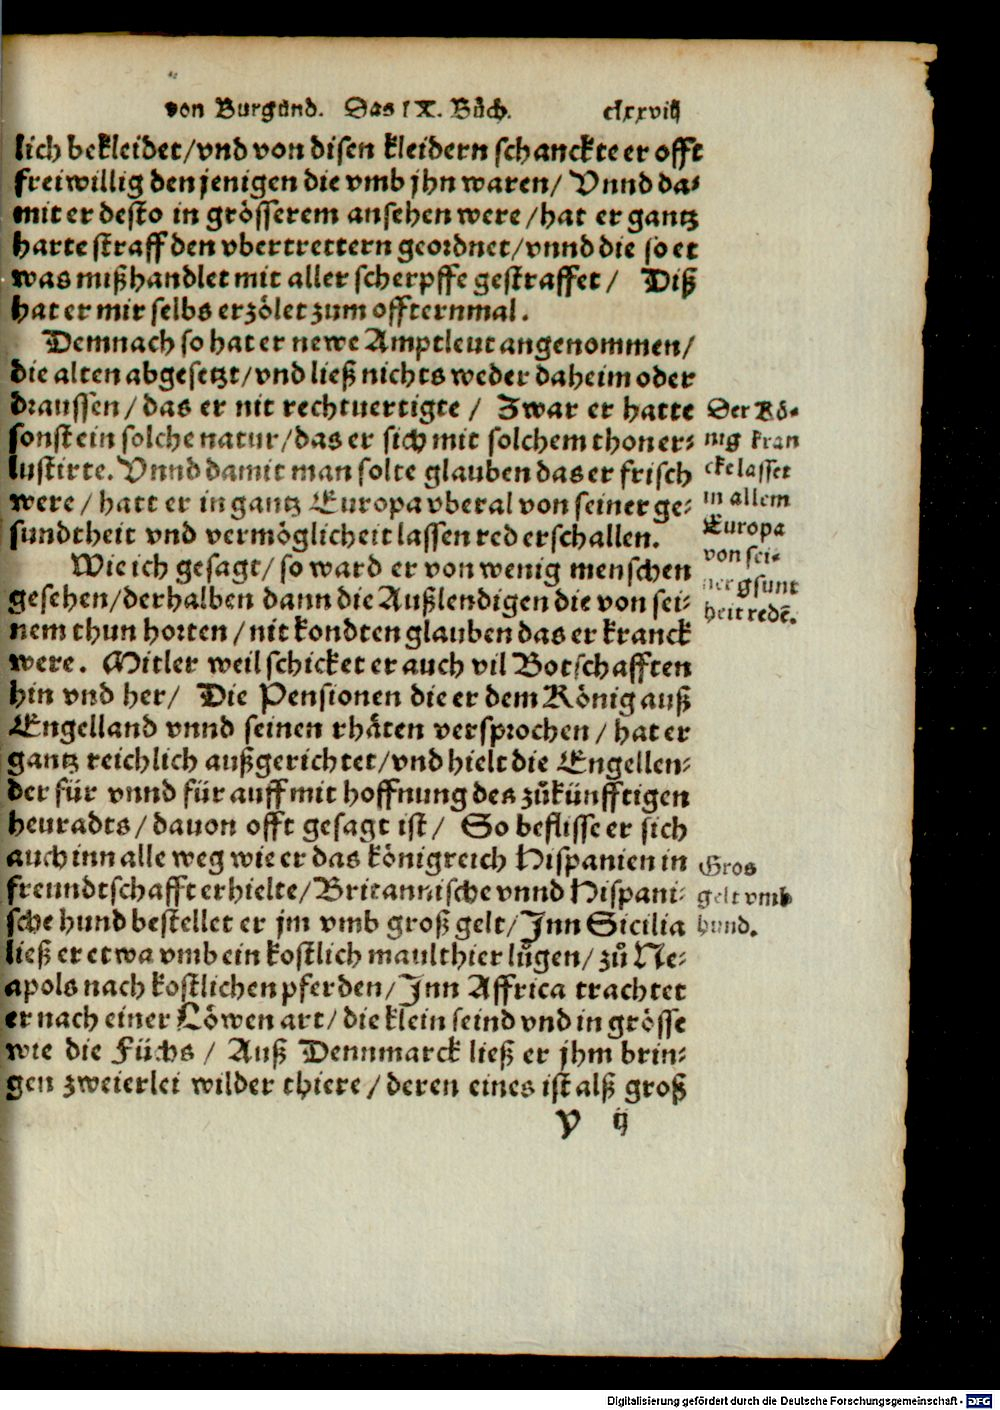 von Burgund. Das IX. Bůch. clxxviij
lich bekleidet/vnd von disen kleidern schanckte er offt
freiwillig den jenigen die vmb jhn waren/ Vnnd da⸗
mit er desto in grösserem ansehen were/hat er gantz
harte straff den vbertrettern geordnet/vnnd die so et
was mißhandlet mit aller scherpffe gestraffet/ Diß
hat er mir selbs erzölet zum offternmal.
Demnach so hat er newe Amptleut angenommen/
die alten abgesetzt/vnd ließ nichts weder daheim oder
draussen/das er nit rechtuertigte/ Zwar er hatte
sonst ein solche natur/das er sich mit solchem thon er⸗
lustirte. Vnnd damit man solte glauben das er frisch
were/hatt er in gantz Europa vberal von seiner ge⸗
sundtheit vnd vermöglicheit lassen red erschallen.
Der Kö⸗
nig kran
cke lasset
in allem
Europa
von sei⸗
ner gsunt
heit redē.
Wie ich gesagt/so ward er von wenig menschen
gesehen/derhalben dann die Außlendigen die von sei⸗
nem thun horten/nit kondten glauben das er kranck
were. Mitler weil schicket er auch vil Botschafften
hin vnd her/ Die Pensionen die er dem König auß
Engelland vnnd seinen rhäten versprochen/hat er
gantz reichlich außgerichtet/vnd hielt die Engellen⸗
der für vnnd für auff mit hoffnung des zůkünfftigen
heuradts/dauon offt gesagt ist/ So beflisse er sich
auch inn alle weg wie er das königreich Hispanien in
freundtschafft erhielte/Britannische vnnd Hispani⸗
sche hund bestellet er jm vmb groß gelt/Jnn Sicilia
ließ er etwa vmb ein kostlich maulthier lůgen/zů Ne⸗
apols nach kostlichen pferden/Jnn Affrica trachtet
er nach einer Löwen art/die klein seind vnd in grösse
wie die Füchs/ Auß Dennmarck ließ er jhm brin⸗
gen zweierlei wilder thiere/deren eines ist alß groß
Gros
gelt vmb
hund.
V ij
Digitalisierung gefördert durch die Deutsche Forschungsgemeinschaft - DFG